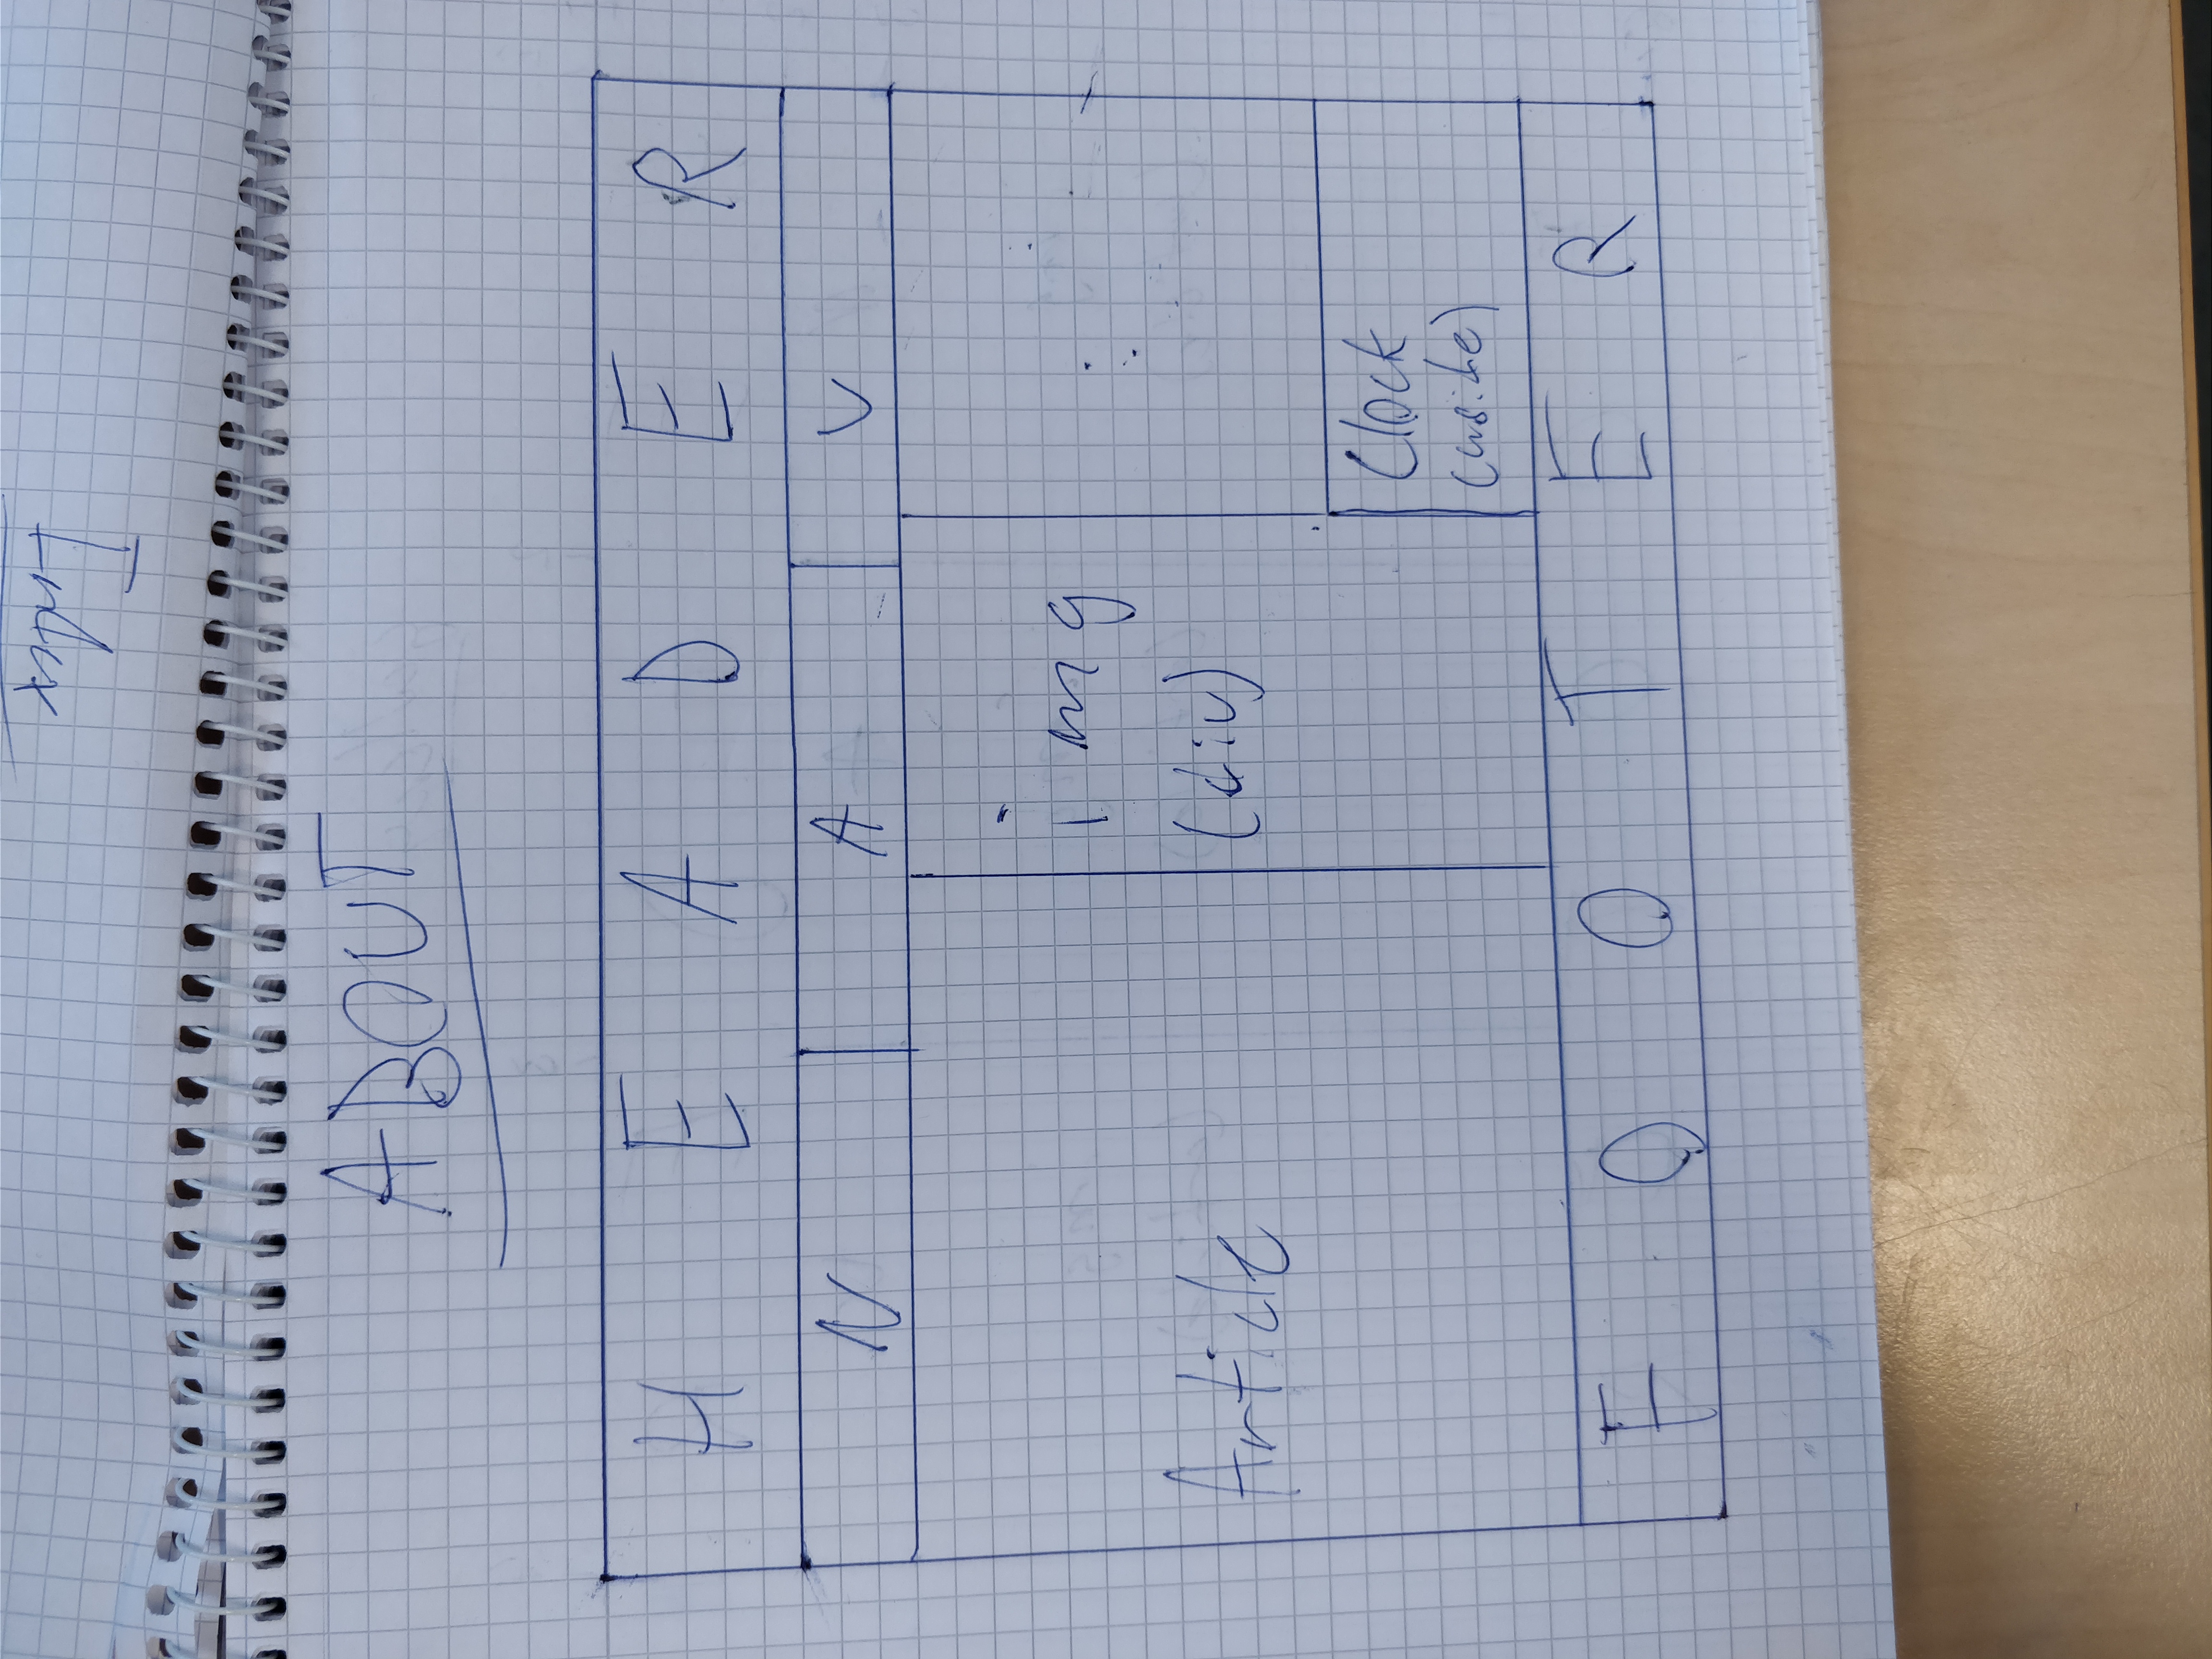 Index
ABOUT
HEADER
NAV
Article
img
(div)
Clock
FOOTER